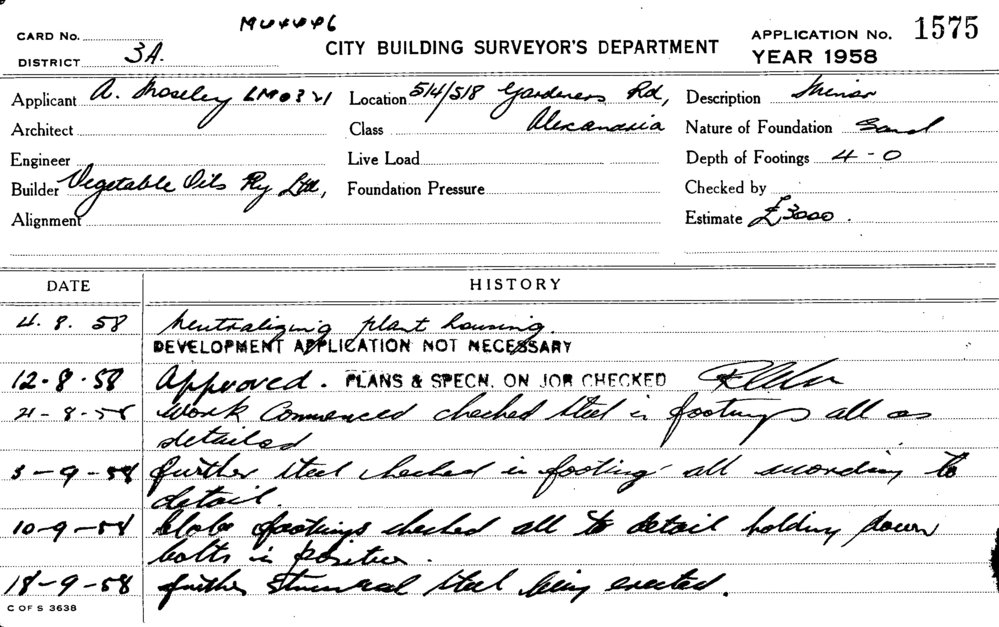 MU4446
CARD No.
DISTRICT 3A.
CITY BUILDING SURVEYOR'S DEPARTMENT
APPLICATION No. 1575
YEAR 1958
Applicant A. Moseley LM0321
Location 514/518 Gardeners Rd,
Description Minor
Architect
Class Alexandria
Nature of Foundation Sand
Engineer
Live Load
Depth of Footings 4-0
Builder Vegetable Oils Pty Ltd,
Foundation Pressure
Checked by
Alignment
Estimate £3000.
DATE HISTORY
4. 8. 58 Neutralizing plant housing.
DEVELOPMENT APPLICATION NOT NECESSARY
12-8-58 Approved. PLANS & SPECN. ON JOB CHECKED
21-8-58 Work Commenced checked steel in footings all as
detailed
3-9-58 further steel checked in footing all according to
detail.
10-9-58 footings checked all to detail holding down
bolts in position.
18-9-58 further structural steel being erected.
C OF S 3638